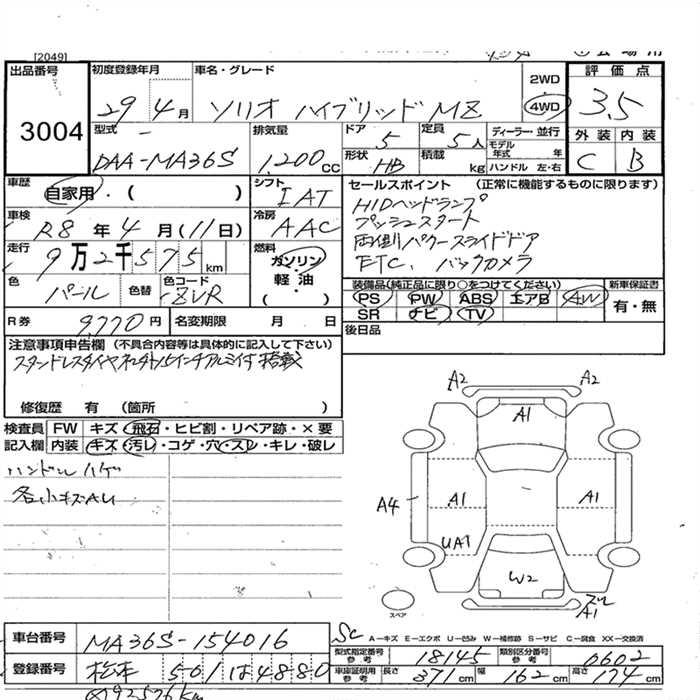 [2049]
出品番号 3004
初度登録年月 29年4月
車名・グレード ソリオ ハイブリッド MZ
2WD 4WD
評価点 3.5
外装 C 内装 B
型式 DAA-MA36S
排気量 1,200cc
ドア 5 定員 5人
形状 HB 積載 kg
ディーラー・並行
モデル年式 年
ハンドル 左・右
車歴 自家用・( )
シフト IAT
車検 R8年4月(11日)
冷房 AAC
走行 9万2千575km
燃料 ガソリン・軽油 ( )
色 パール 色替 色コード ZVR
R券 9,770円 名変期限 月 日
セールスポイント (正常に機能するものに限ります)
HIDヘッドランプ
プッシュスタート
両側パワースライドドア
ETC、バックカメラ
装備品(純正品に限り○をつけてください)
PS PW ABS エアB AW
SR ナビ TV
新車保証書 有・無
後日品
注意事項申告欄 (不具合内容等は具体的に記入して下さい)
スタッドレスタイヤ 15インチアルミ 搭載
修復歴 有 (箇所 )
検査員記入欄
FW キズ・飛石・ヒビ割・リペア跡・×要
内装 キズ・汚レ・コゲ・穴・スレ・キレ・破レ
ハンドルハゲ
各小キズAU
A2 A2
A1
A4 A1 A1
UA1
W2
A1
スペア
A－キズ E－エクボ U－凹み W－補修跡 S－サビ C－腐食 XX－交換済
車台番号 MA36S-154016
登録番号 松本 501 は 4880
型式指定番号 参考 18145
類別区分番号 参考 0602
車庫証明用 参考 長さ 371cm 幅 162cm 高さ 174cm
92576km